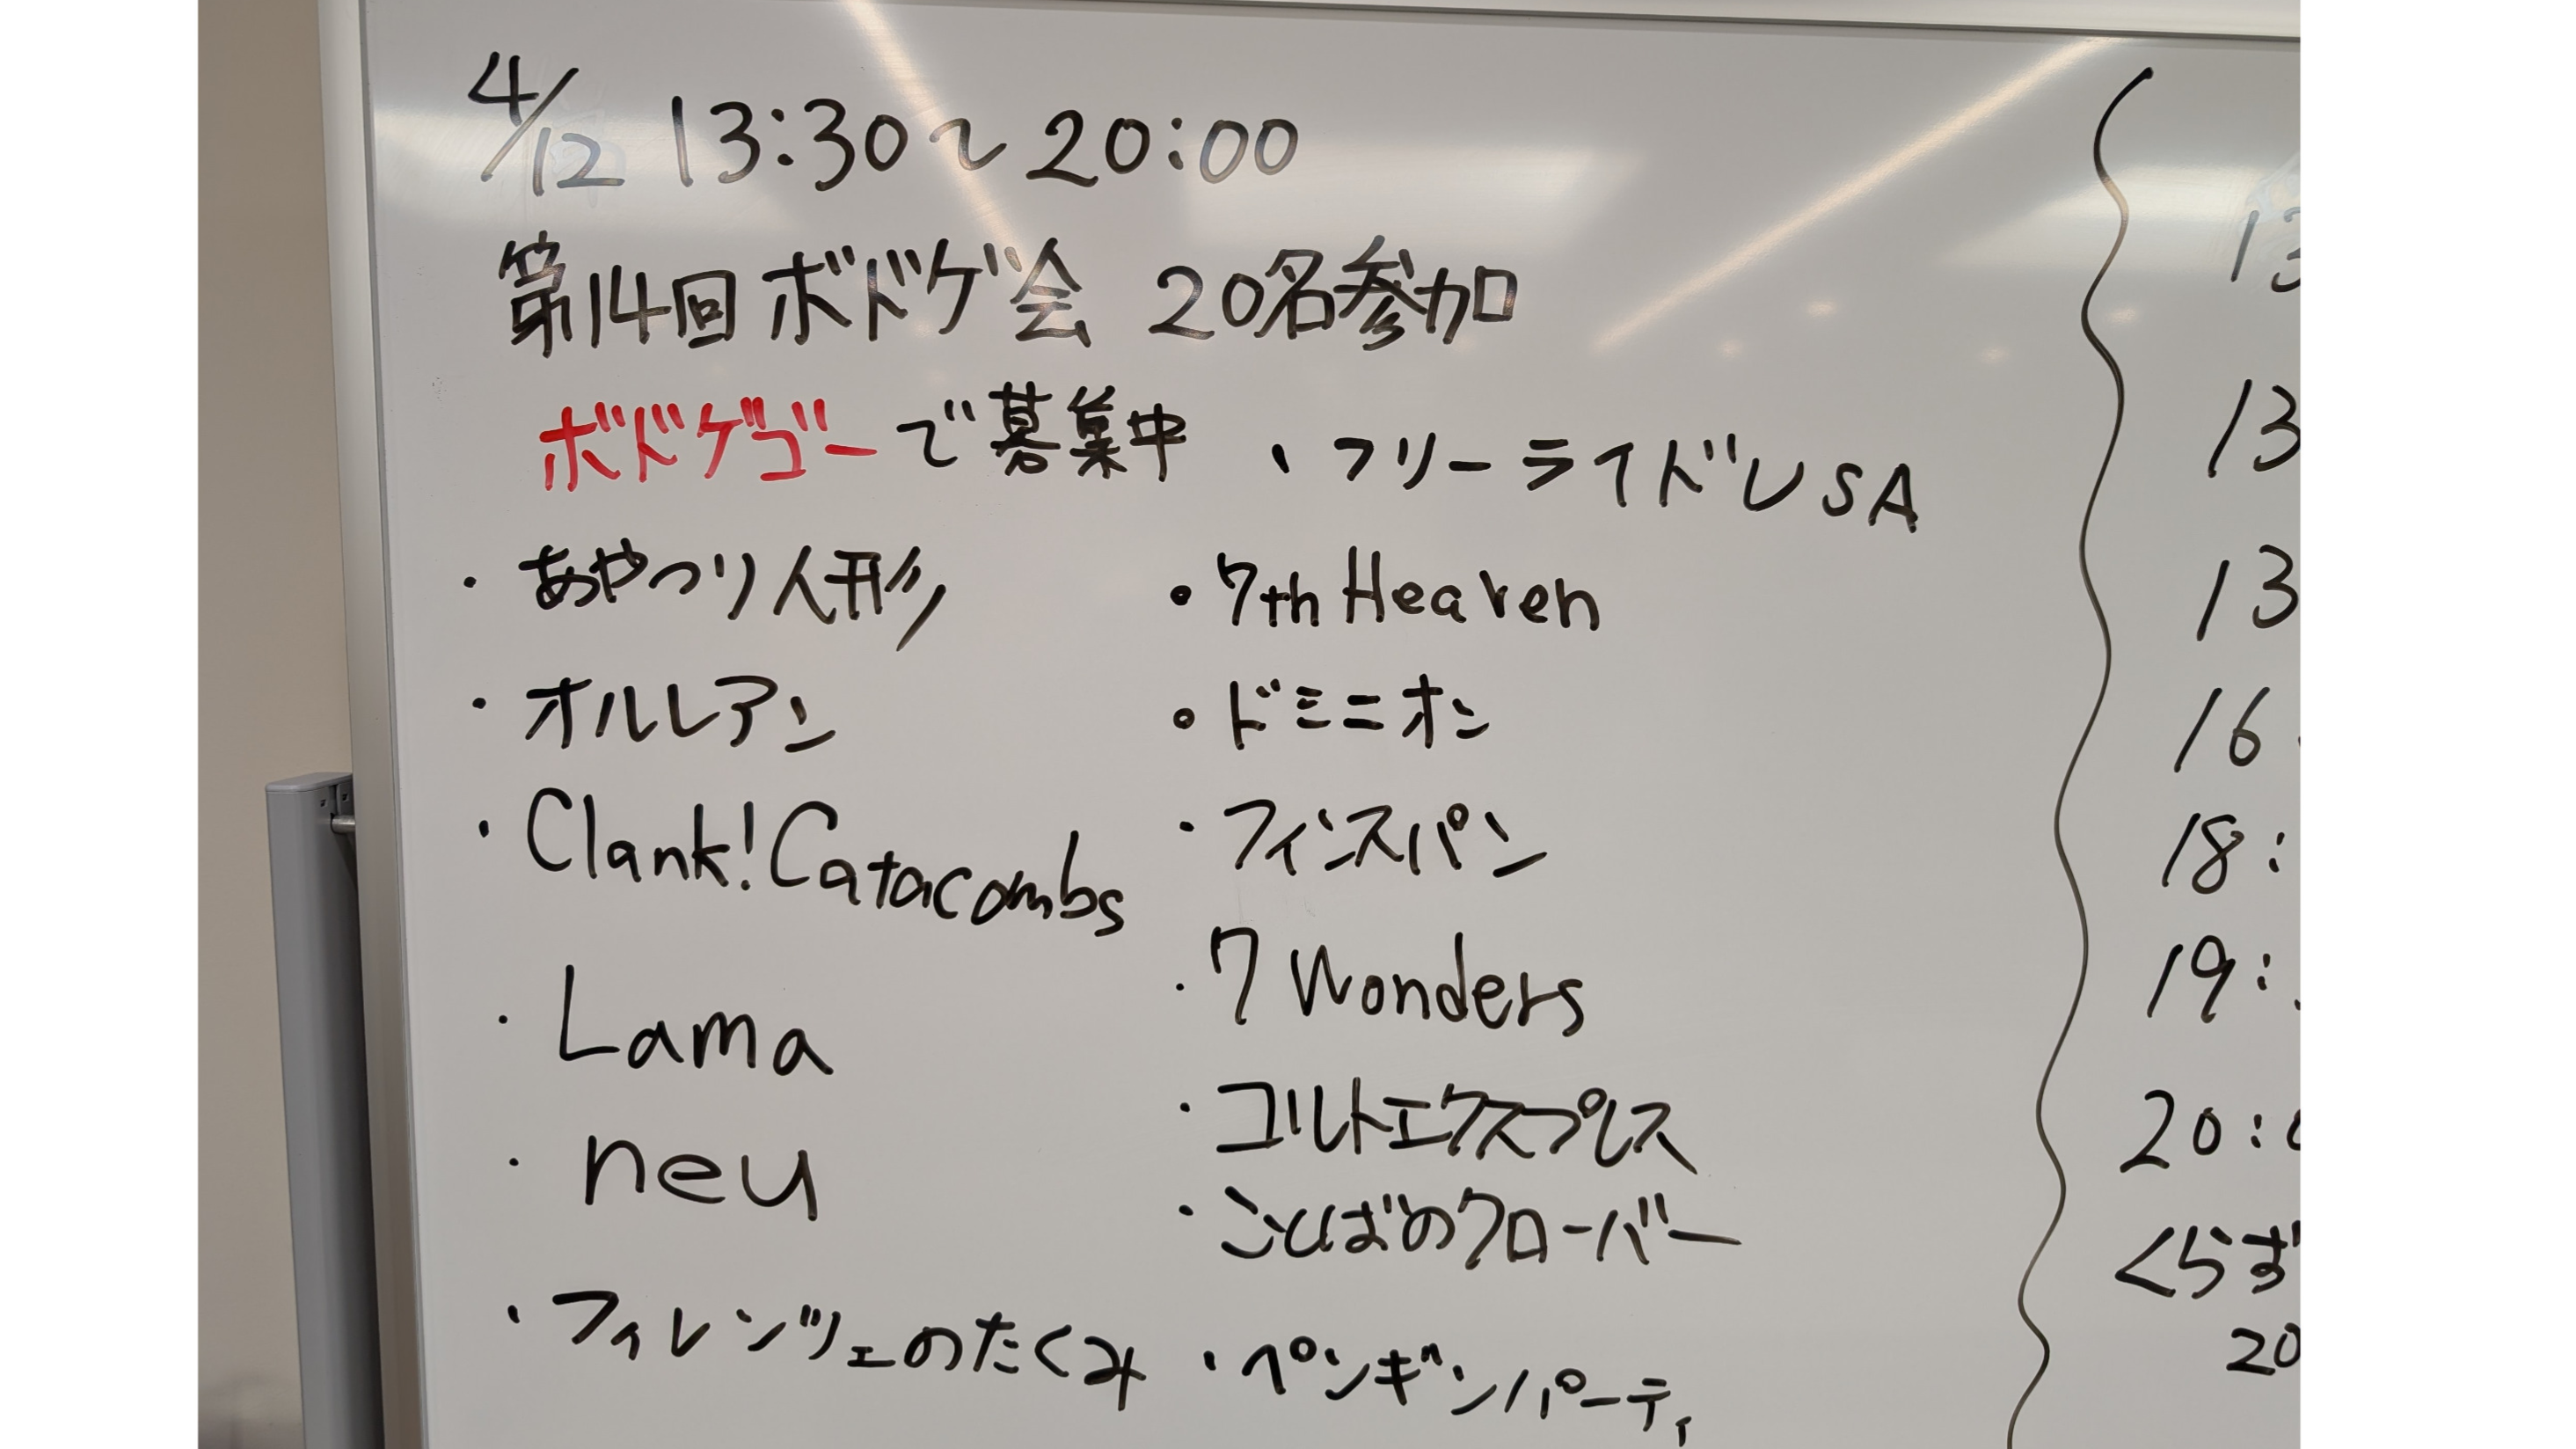 4/12 13:30〜20:00
第14回ボドゲ会 20名参加
ボドゲゴーで募集中
・あやつり人形
・オルレアン
・Clank!Catacombs
・Lama
・neu
・フィレンツェのたくみ
・フリーライドUSA
・7th Heaven
・ドミニオン
・フィンスパン
・7 Wonders
・コルトエクスプレス
・ことばのクローバー
・ペンギンパーティ
13
13
13
16
18:
19:
20:
くらず
20